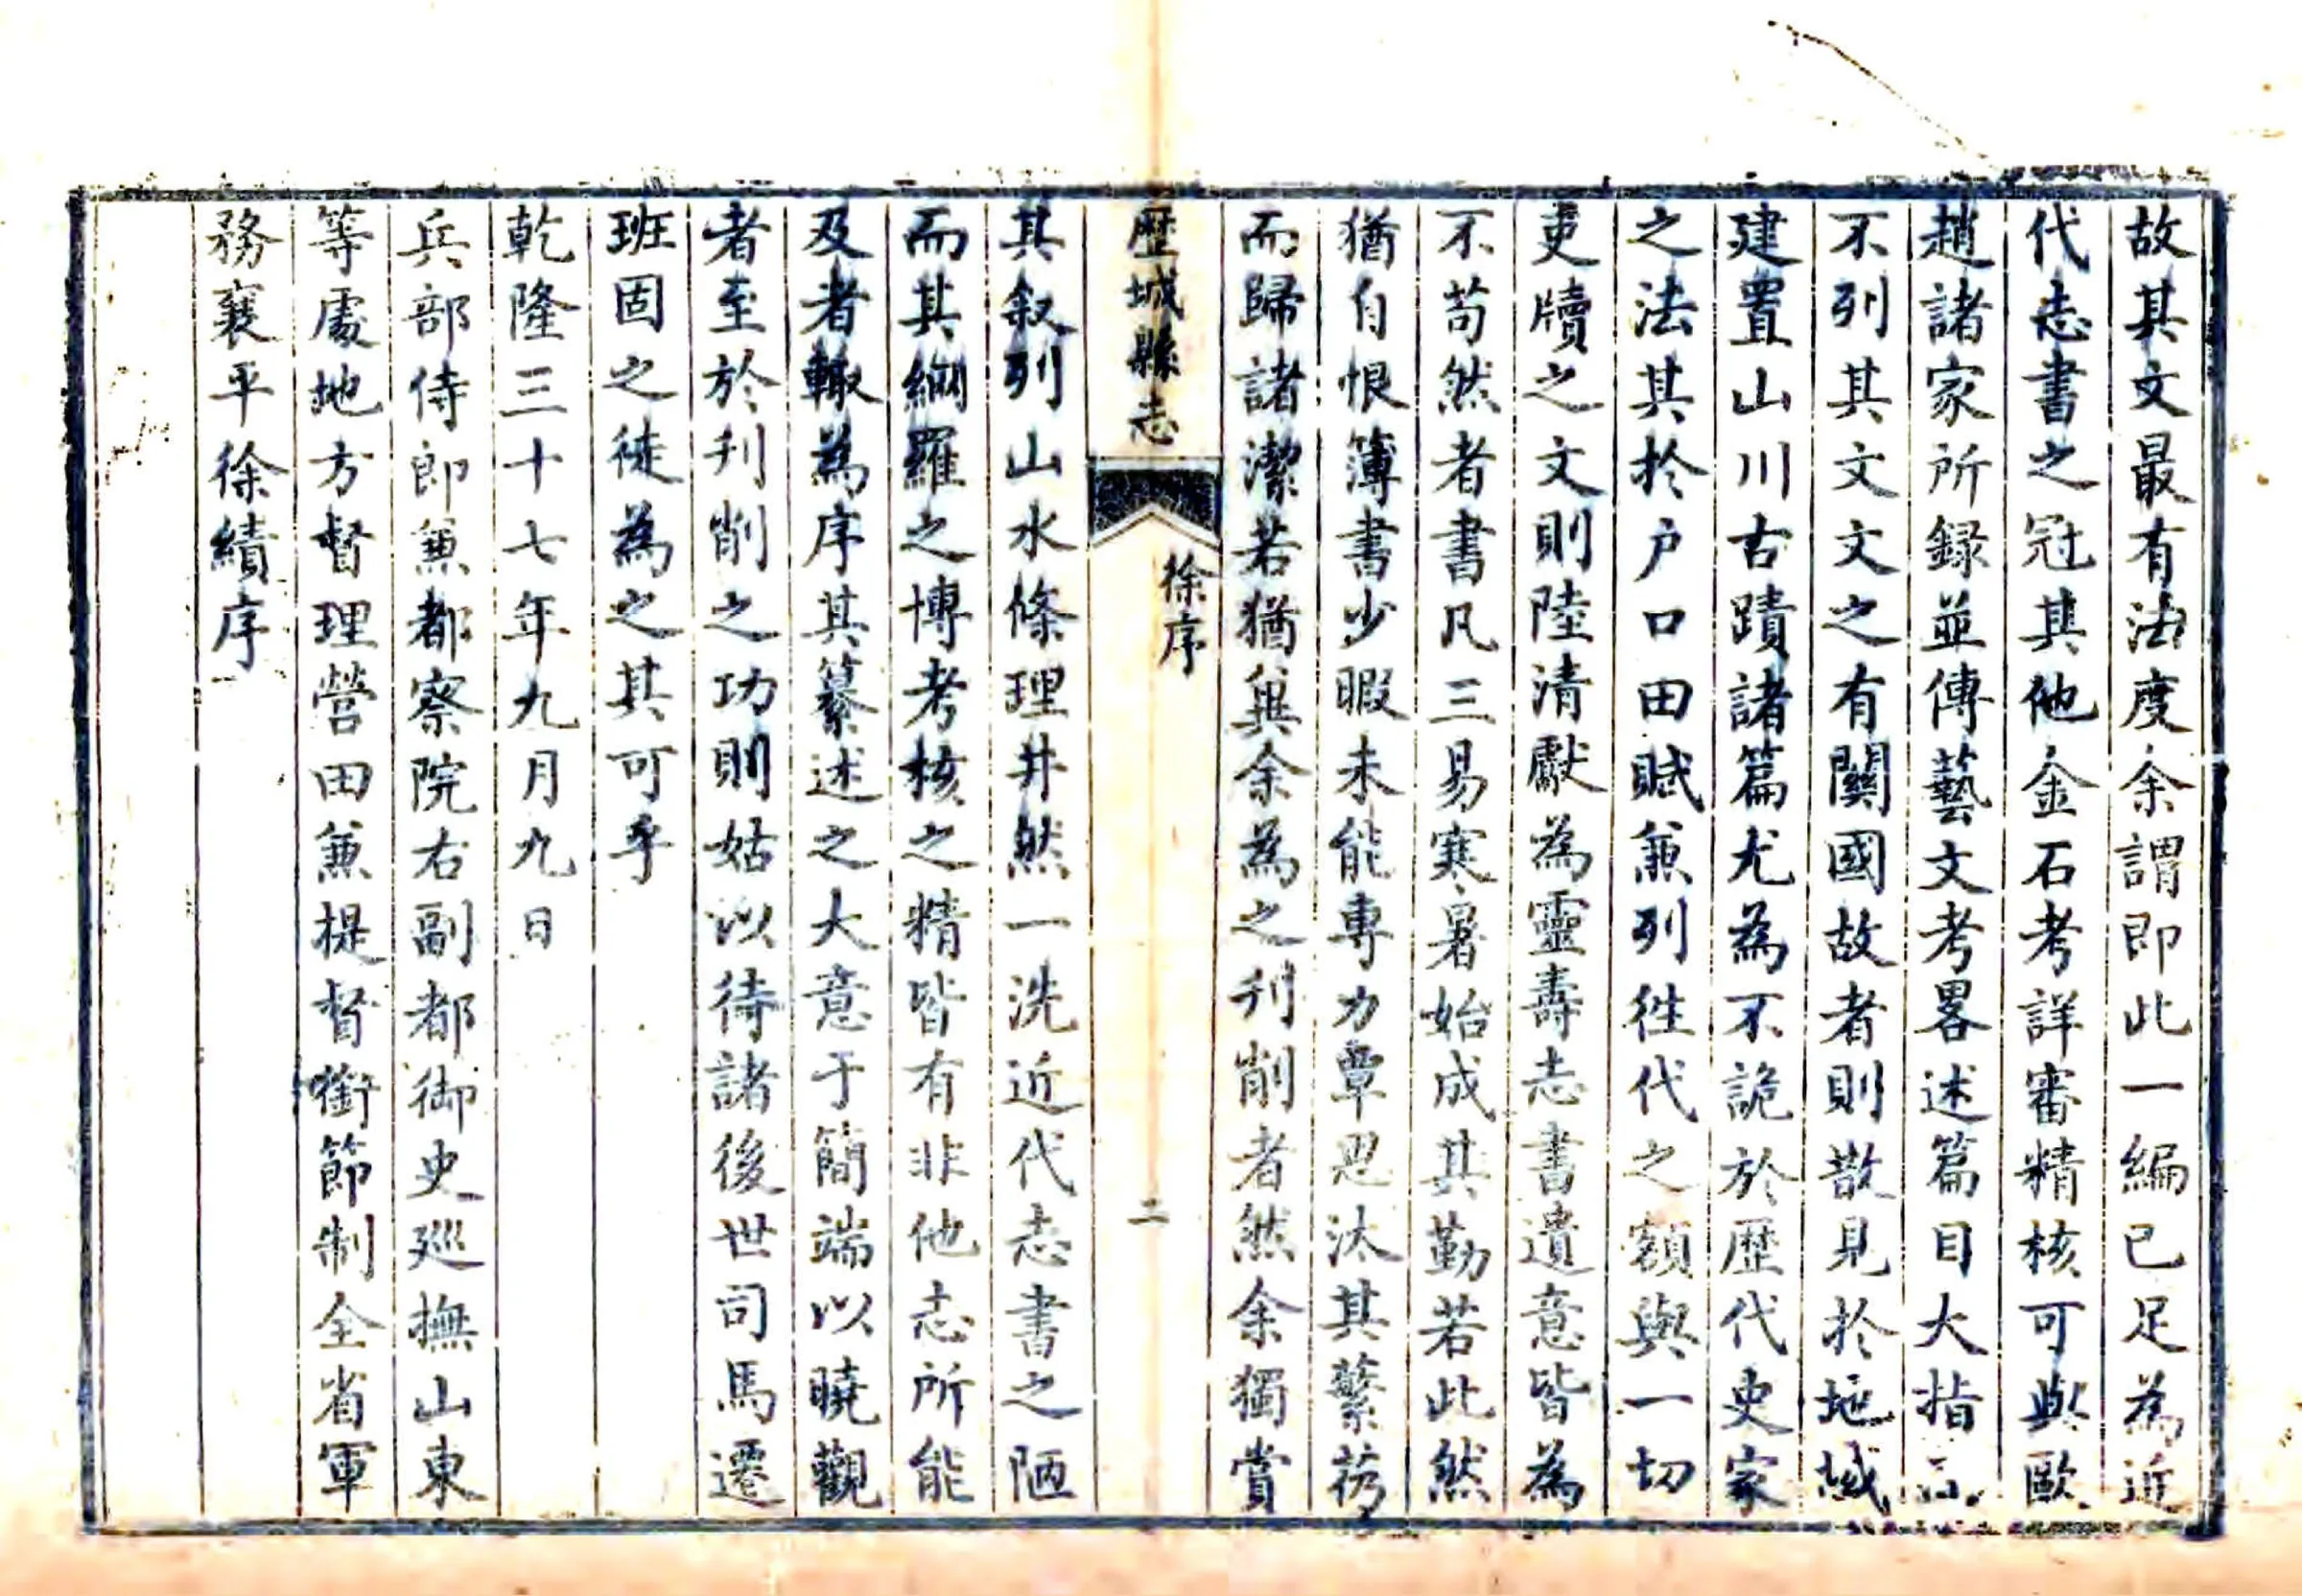 故其文最有法度余謂即此一編已足為近
代志書之冠其他金石考詳審精核可與歐
趙諸家所録並傳藝文考畧述篇目大指而
不列其文文之有關國故者則散見於地域
建置山川古蹟諸篇尤為不詭於歴代史家
之法其於户口田賦兼列徃代之額與一切
吏牘之文則陸清獻為靈壽志書遺意皆為
不苟然者書凡三易寒暑始成其勤若此然
猶自恨簿書少暇未能專力覃思汰其蘩蕪
而歸諸潔若猶兾余為之刋削者然余獨賞
歴城縣志
徐序
二
其叙列山水條理井然一洗近代志書之陋
而其綱羅之博考核之精皆有非他志所能
及者輙為序其纂述之大意于簡端以曉觀
者至於刋削之功則姑以待諸後世司馬遷
班固之徒為之其可乎
乾隆三十七年九月九日
兵部侍郎兼都察院右副都御史廵撫山東
等處地方督理營田兼提督銜節制全省軍
務襄平徐績序